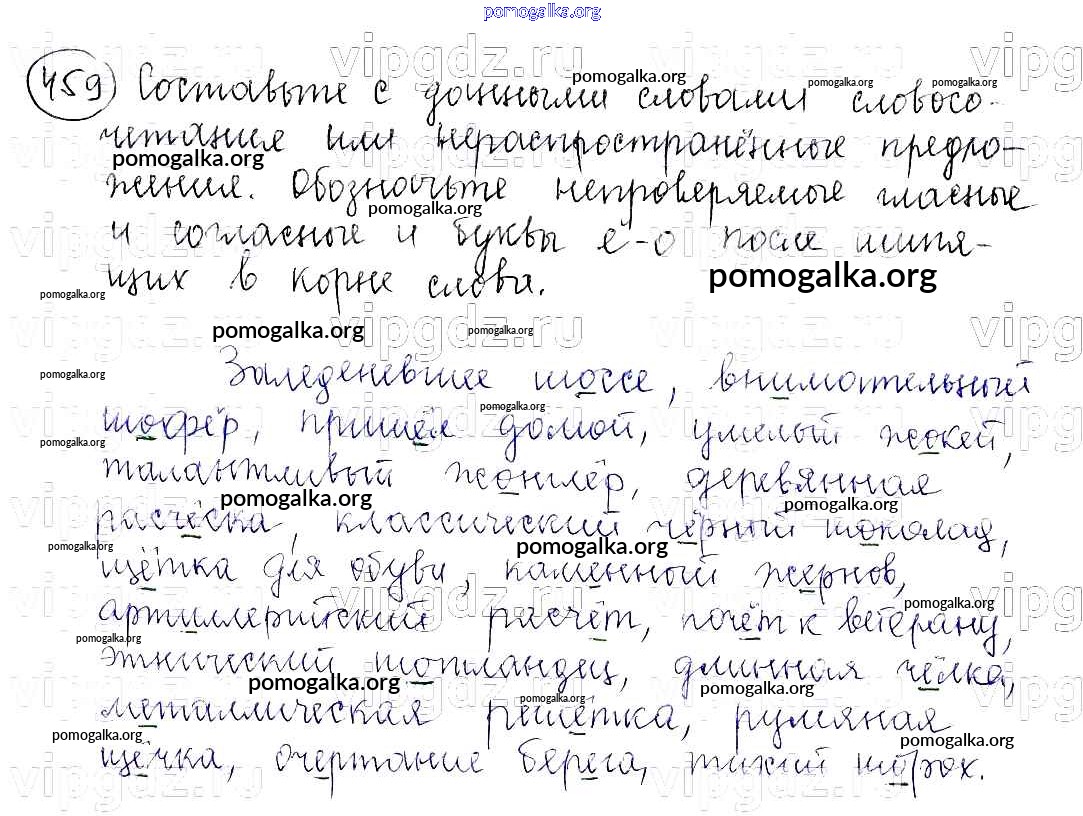 pomogalka.org
459 Составьте с данными словами словосо-
четания или нераспространённые предло-
жения. Обозначьте непроверяемые гласные
и согласные и буквы ё-о после шипя-
щих в корне слова.
Заледеневшее шоссе, внимательный
шофёр, пришёл домой, умелый жокей,
талантливый жонглёр, деревянная
расчёска, классический чёрный шоколад,
щётка для обуви, каменный жернов,
артиллерийский расчёт, почёт к ветерану,
этнический шотландец, длинная чёлка,
металлическая решётка, румяная
щёчка, очертание берега, тихий шорох.